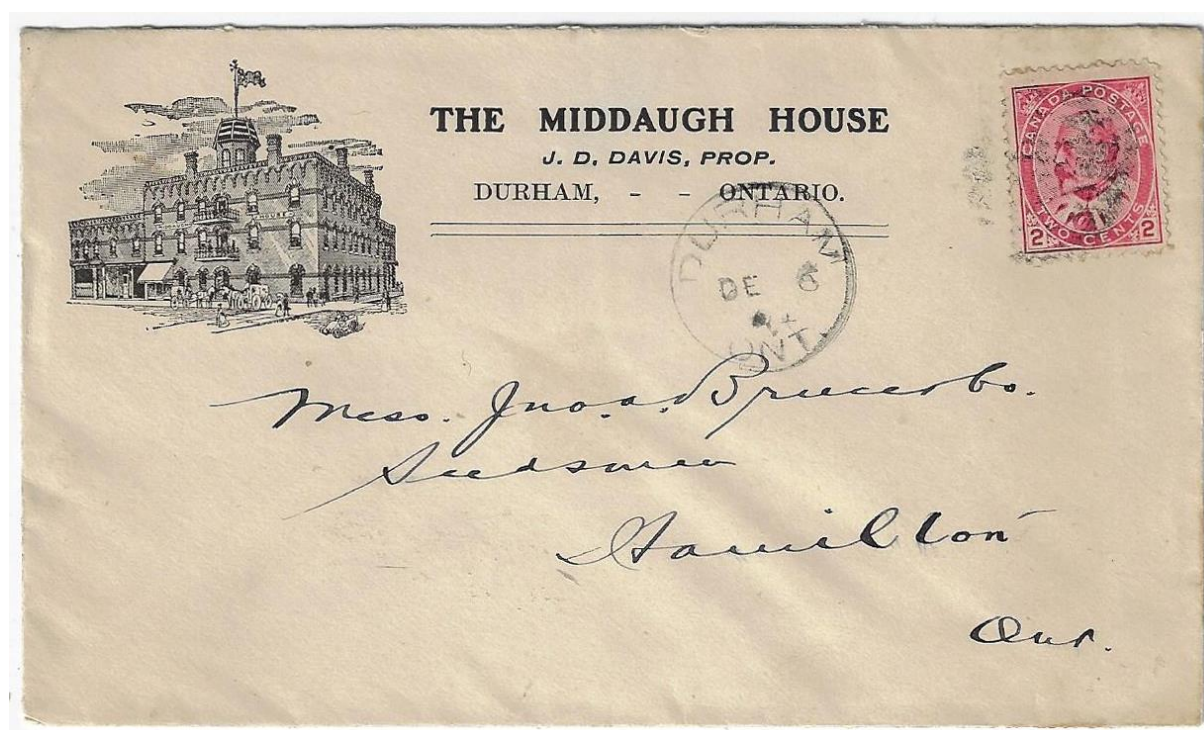 THE MIDDAUGH HOUSE
J. D. DAVIS, PROP.
DURHAM, - - ONTARIO.
CANADA POSTAGE
2 TWO CENTS 2
DURHAM
DE 6
ONT.
Mess. Jno. A. Bruce & Co.
Seedsmen
Hamilton
Ont.